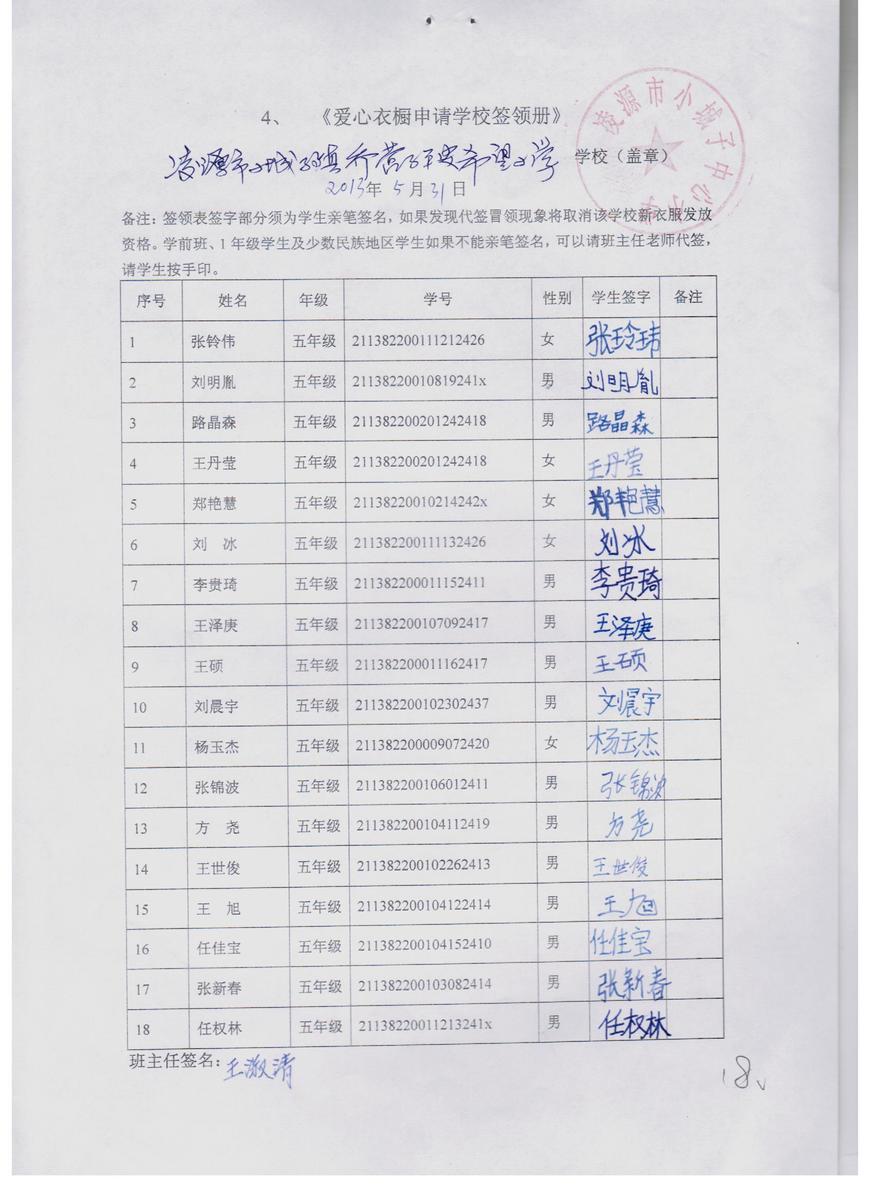 凌源市小城子中心小学
4、 《爱心衣橱申请学校签领册》
凌源市小城子镇乔营子平安希望小学 学校（盖章）
2013年 5 月 31 日
备注：签领表签字部分须为学生亲笔签名，如果发现代签冒领现象将取消该学校新衣服发放
资格。学前班、1 年级学生及少数民族地区学生如果不能亲笔签名，可以请班主任老师代签，
请学生按手印。
序号 姓名 年级 学号 性别 学生签字 备注
1 张铃伟 五年级 211382200111212426 女 张玲玮
2 刘明胤 五年级 21138220010819241x 男 刘明胤
3 路晶森 五年级 211382200201242418 男 路晶森
4 王丹莹 五年级 211382200201242418 女 王丹莹
5 郑艳慧 五年级 21138220010214242x 女 郑艳慧
6 刘 冰 五年级 211382200111132426 女 刘冰
7 李贵琦 五年级 211382200011152411 男 李贵琦
8 王泽庚 五年级 211382200107092417 男 王泽庚
9 王硕 五年级 211382200011162417 男 王硕
10 刘晨宇 五年级 211382200102302437 男 刘晨宇
11 杨玉杰 五年级 211382200009072420 女 杨玉杰
12 张锦波 五年级 211382200106012411 男 张锦波
13 方 尧 五年级 211382200104112419 男 方尧
14 王世俊 五年级 211382200102262413 男 王世俊
15 王 旭 五年级 211382200104122414 男 王旭
16 任佳宝 五年级 211382200104152410 男 任佳宝
17 张新春 五年级 211382200103082414 男 张新春
18 任权林 五年级 21138220011213241x 男 任权林
班主任签名：王淑清
18、